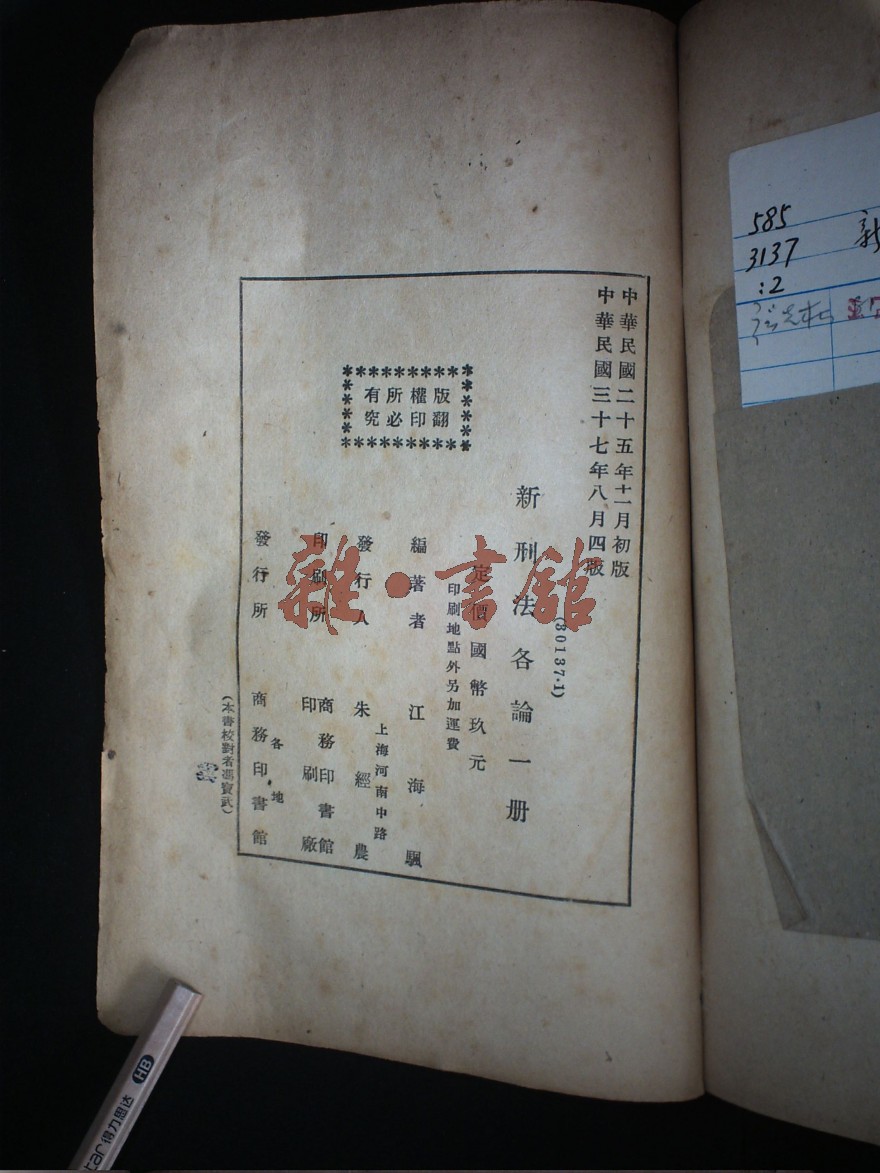 中華民國二十五年十一月初版
中華民國三十七年八月四版
(30137·1)
新刑法各論一册
定價國幣玖元
印刷地點外另加運費
版權所有
翻印必究
編著者 江海颿
上海河南中路
發行人 朱經農
印刷所 商務印書館
印刷廠
各地
發行所 商務印書館
(本書校對者馮寶武)
雜·書館
585
3137
:2
新
HB
得力思达